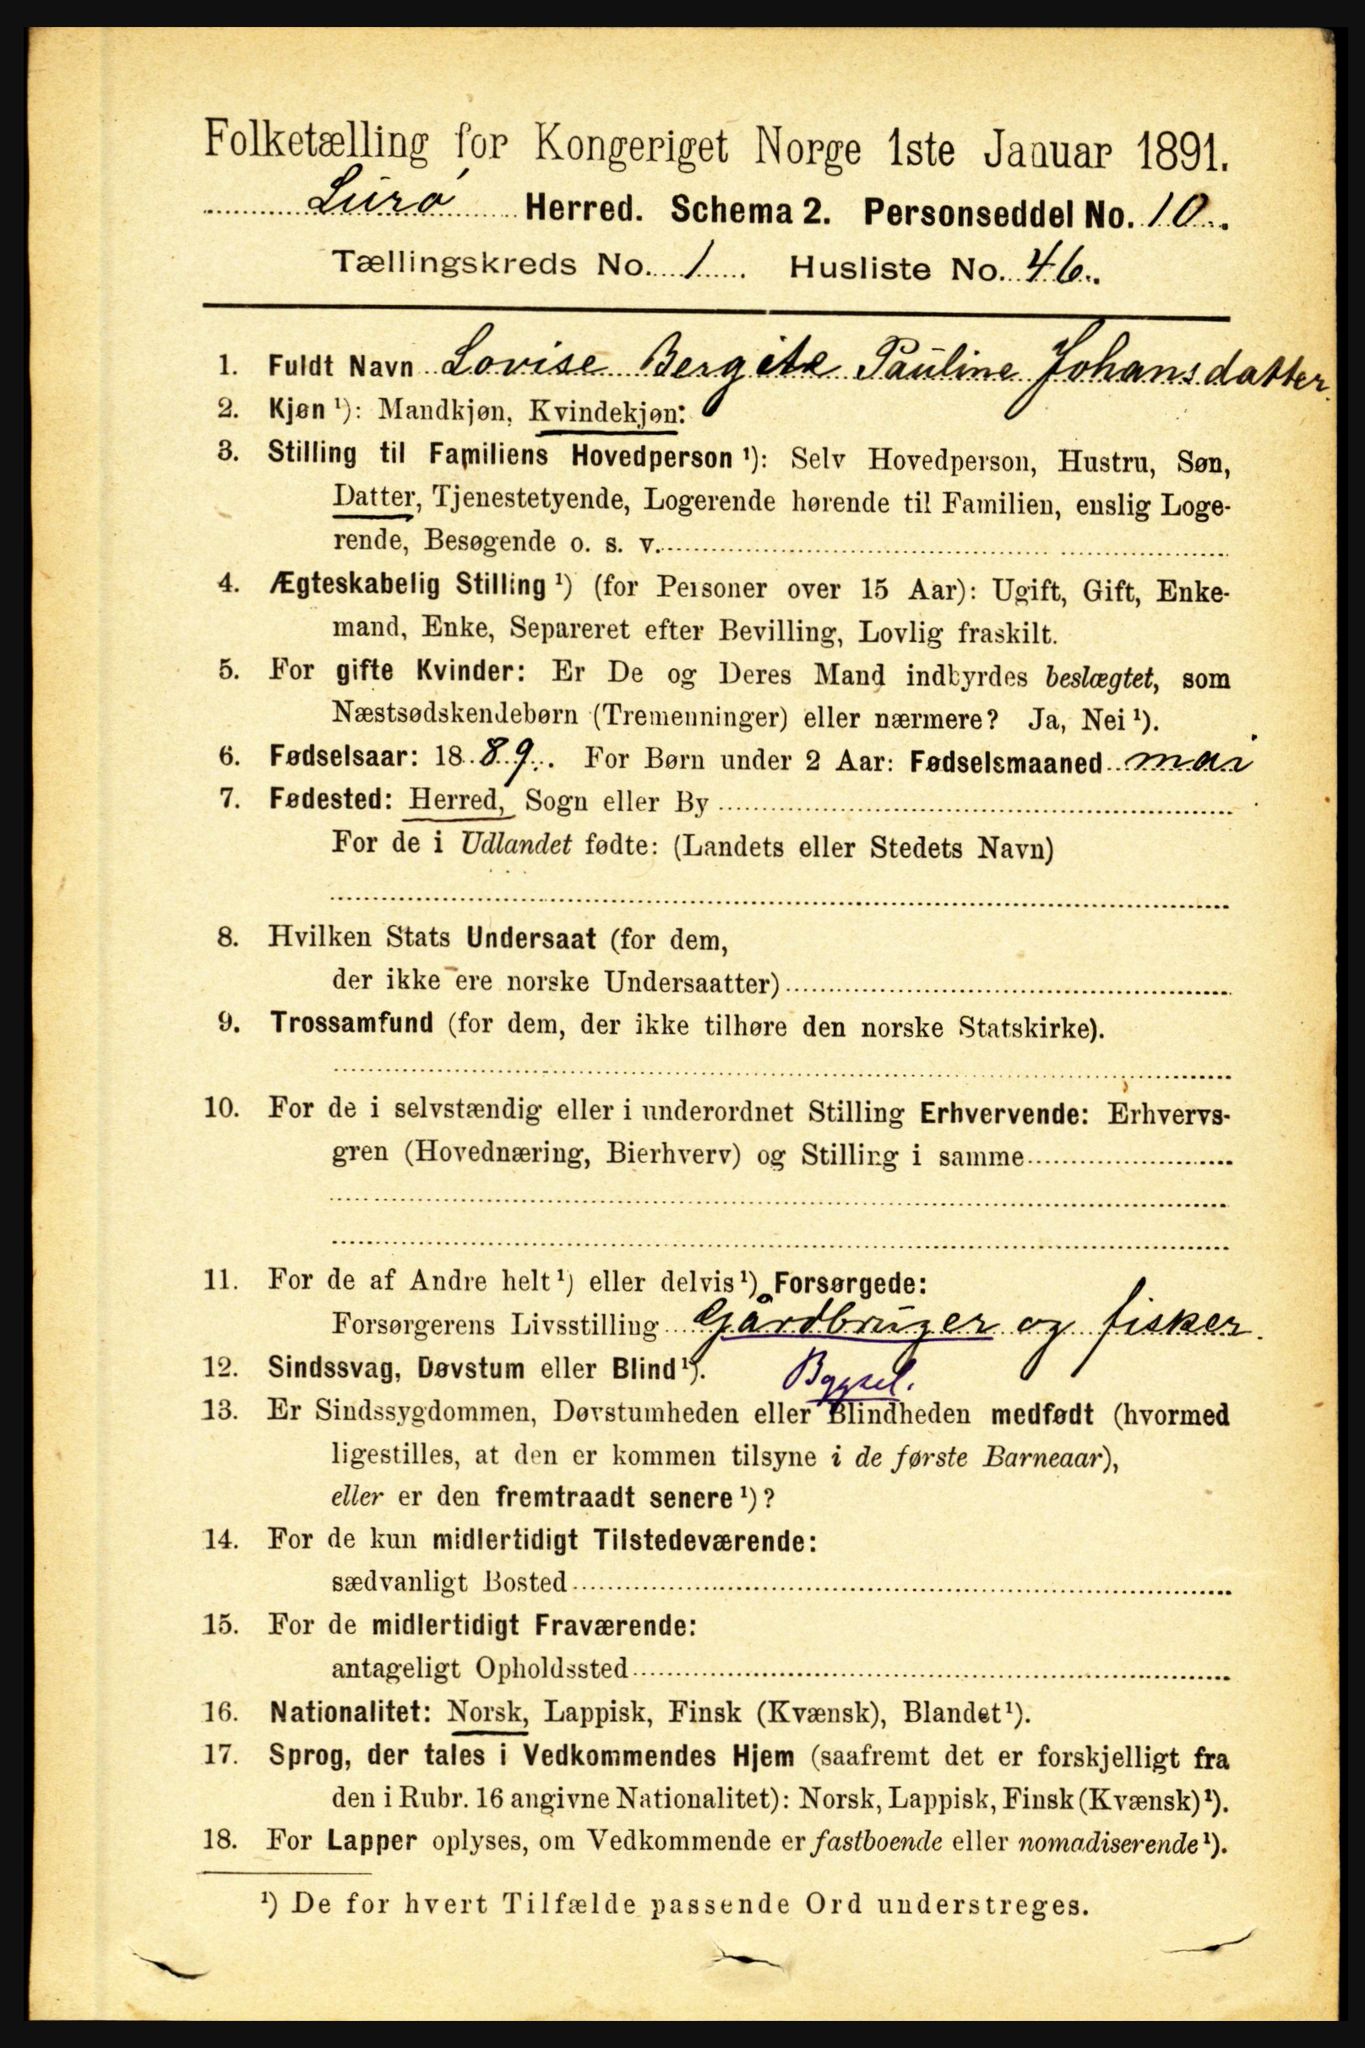 Folketælling for Kongeriget Norge 1ste Januar 1891.
Lurø Herred. Schema 2. Personseddel No. 10.
Tællingskreds No. 1. Husliste No. 46.
1. Fuldt Navn Lovise Bergite Pauline Johansdatter.
2. Kjøn ¹): Mandkjøn, Kvindekjøn:
3. Stilling til Familiens Hovedperson ¹): Selv Hovedperson, Hustru, Søn,
Datter, Tjenestetyende, Logerende hørende til Familien, enslig Loge-
rende, Besøgende o. s. v.
4. Ægteskabelig Stilling ¹) (for Personer over 15 Aar): Ugift, Gift, Enke-
mand, Enke, Separeret efter Bevilling, Lovlig fraskilt.
5. For gifte Kvinder: Er De og Deres Mand indbyrdes beslægtet, som
Næstsødskendebørn (Tremenninger) eller nærmere? Ja, Nei ¹).
6. Fødselsaar: 1889. For Børn under 2 Aar: Fødselsmaaned mai
7. Fødested: Herred, Sogn eller By
For de i Udlandet fødte: (Landets eller Stedets Navn)
8. Hvilken Stats Undersaat (for dem,
der ikke ere norske Undersaatter)
9. Trossamfund (for dem, der ikke tilhøre den norske Statskirke).
10. For de i selvstændig eller i underordnet Stilling Erhvervende: Erhvervs-
gren (Hovednæring, Bierhverv) og Stilling i samme
11. For de af Andre helt ¹) eller delvis ¹) Forsørgede:
Forsørgerens Livsstilling Gårdbruger og fisker.
12. Sindssvag, Døvstum eller Blind ¹). Bygsel.
13. Er Sindssygdommen, Døvstumheden eller Blindheden medfødt (hvormed
ligestilles, at den er kommen tilsyne i de første Barneaar),
eller er den fremtraadt senere ¹)?
14. For de kun midlertidigt Tilstedeværende:
sædvanligt Bosted
15. For de midlertidigt Fraværende:
antageligt Opholdssted
16. Nationalitet: Norsk, Lappisk, Finsk (Kvænsk), Blandet ¹).
17. Sprog, der tales i Vedkommendes Hjem (saafremt det er forskjelligt fra
den i Rubr. 16 angivne Nationalitet): Norsk, Lappisk, Finsk (Kvænsk) ¹).
18. For Lapper oplyses, om Vedkommende er fastboende eller nomadiserende ¹).
¹) De for hvert Tilfælde passende Ord understreges.